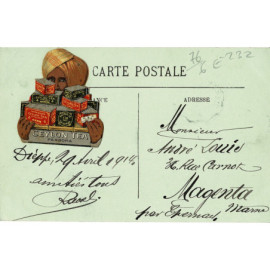 76
6 E -232
CARTE POSTALE
ADRESSE
CEYLON TEA
Monsieur
André Louis
36 Rue Carnot
Magenta
par Epernay Marne
Dieppe, 29 Avril 1914
amitiés tous